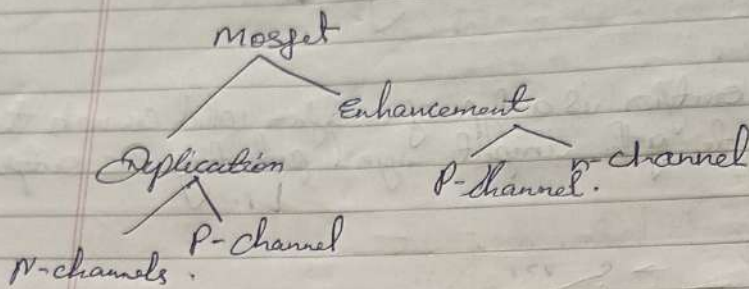 Mosfet
Enhancement
Deplication
P-channel. n-channel
P-channel
N-channels.